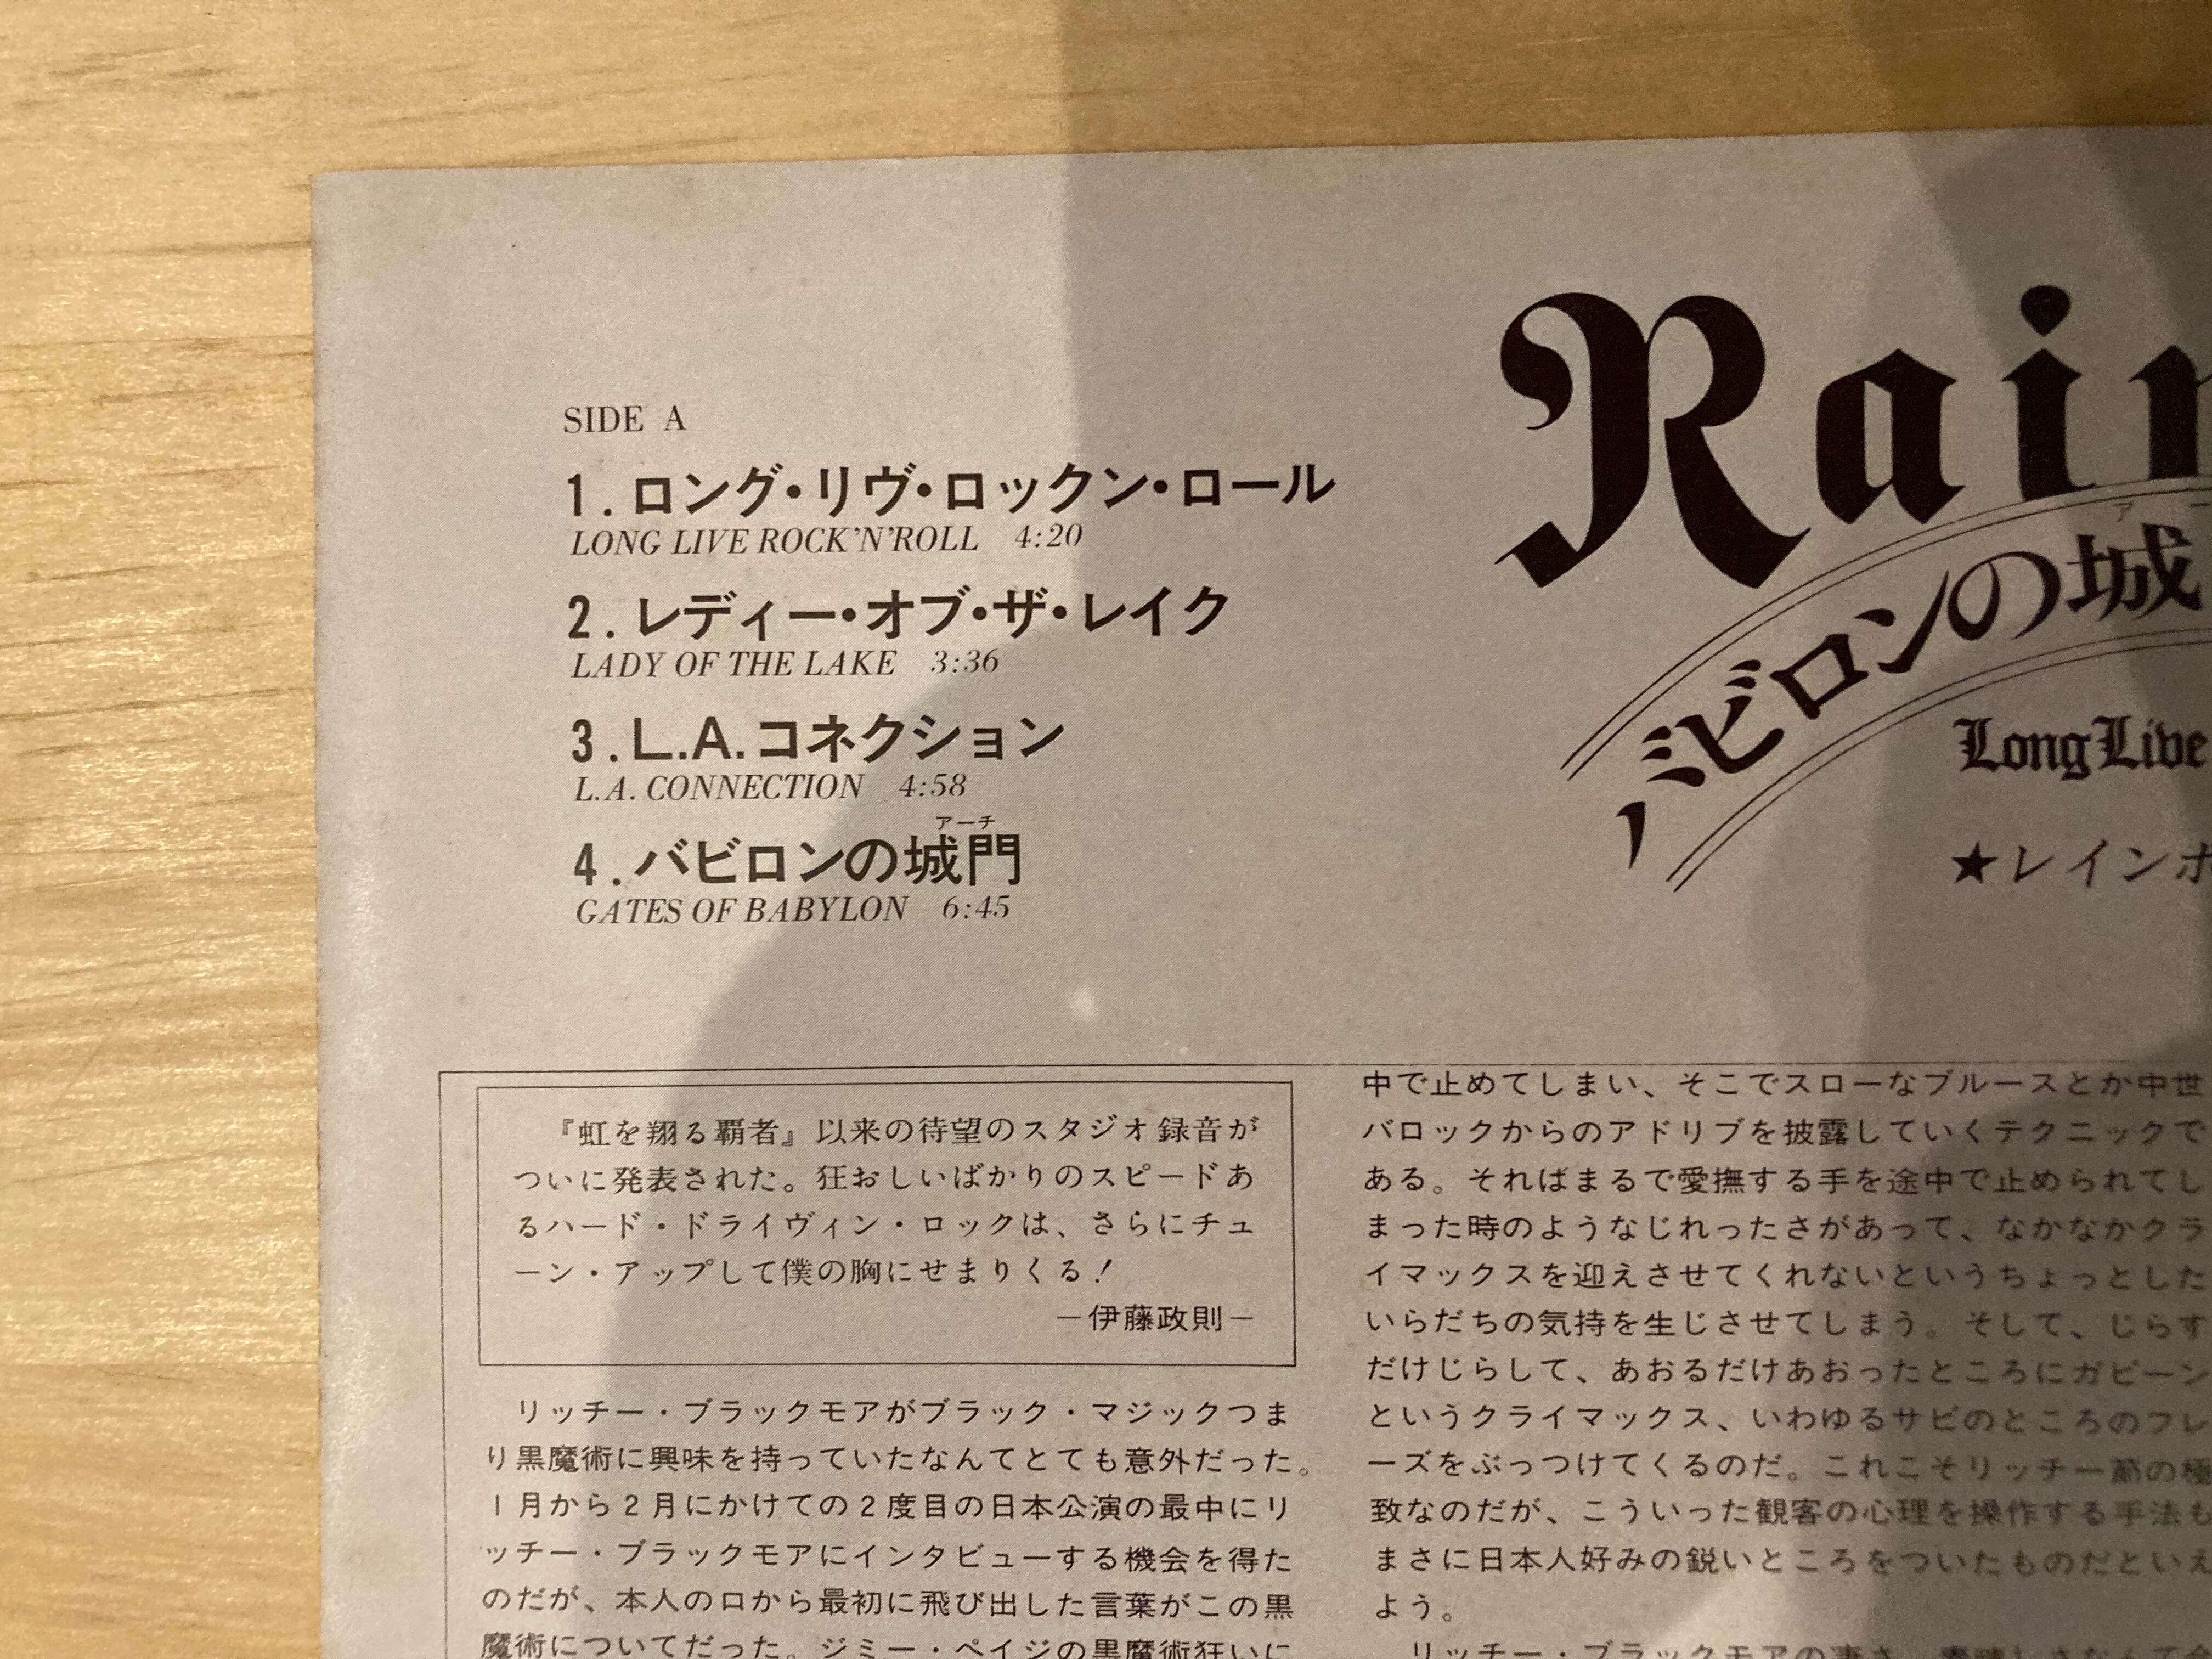 SIDE A
1.ロング・リヴ・ロックン・ロール
LONG LIVE ROCK'N'ROLL 4:20
2.レディー・オブ・ザ・レイク
LADY OF THE LAKE 3:36
3.L.A.コネクション
L.A. CONNECTION 4:58
アーチ
4.バビロンの城門
GATES OF BABYLON 6:45
Rain
バビロンの城
Long Live
★レインボ
『虹を翔る覇者』以来の待望のスタジオ録音が
ついに発表された。狂おしいばかりのスピードあ
るハード・ドライヴィン・ロックは、さらにチュ
ーン・アップして僕の胸にせまりくる！
―伊藤政則―
リッチー・ブラックモアがブラック・マジックつま
り黒魔術に興味を持っていたなんてとても意外だった。
1月から2月にかけての2度目の日本公演の最中にリ
ッチー・ブラックモアにインタビューする機会を得た
のだが、本人の口から最初に飛び出した言葉がこの黒
魔術についてだった。ジミー・ペイジの黒魔術狂いに
中で止めてしまい、そこでスローなブルースとか中世
バロックからのアドリブを披露していくテクニックで
ある。それはまるで愛撫する手を途中で止められてし
まった時のようなじれったさがあって、なかなかクラ
イマックスを迎えさせてくれないというちょっとした
いらだちの気持を生じさせてしまう。そして、じらす
だけじらして、あおるだけあおったところにガビーン
というクライマックス、いわゆるサビのところのフレ
ーズをぶっつけてくるのだ。これこそリッチー節の極
致なのだが、こういった観客の心理を操作する手法も
まさに日本人好みの鋭いところをついたものだといえ
よう。
リッチー・ブラックモアの凄さ、素晴しさなんて